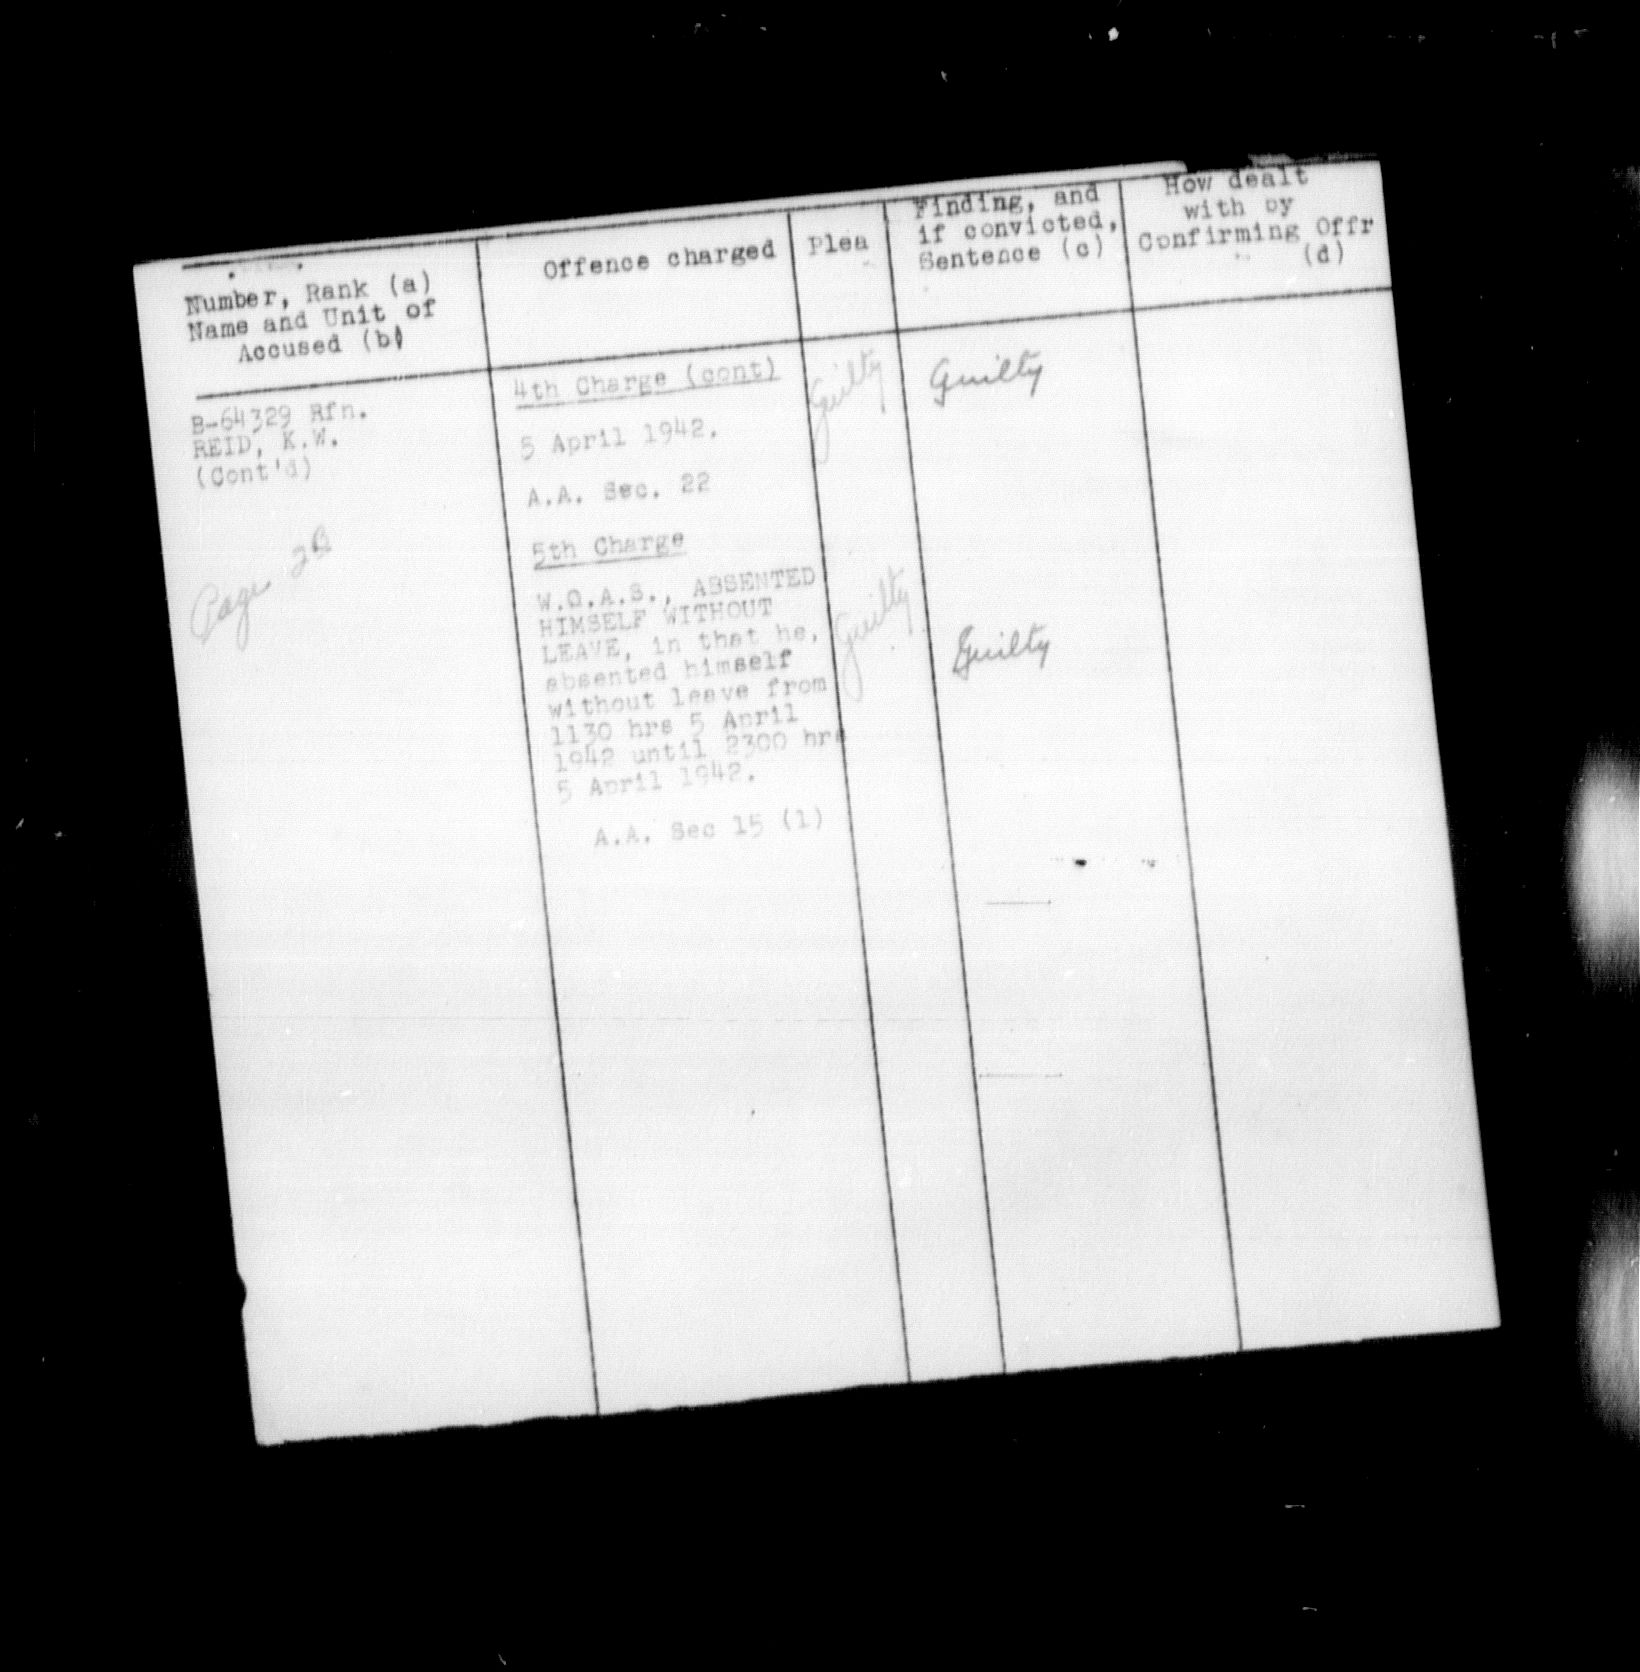 Number, Rank (a)
Name and Unit of
Accused (b)
Offence charged
Plea
Finding, and
if convicted,
Sentence (c)
How dealt
with by
Confirming Offr
(d)
B-64329 Rfn.
REID, K.W.
(Cont'd)
Page 2B
4th Charge (cont)
5 April 1942.
A.A. Sec. 22
Guilty
Guilty
5th Charge
W.O.A.S., ABSENTED
HIMSELF WITHOUT
LEAVE, in that he,
absented himself
without leave from
1130 hrs 5 April
1942 until 2300 hrs
5 April 1942.
A.A. Sec 15 (1)
Guilty
Guilty